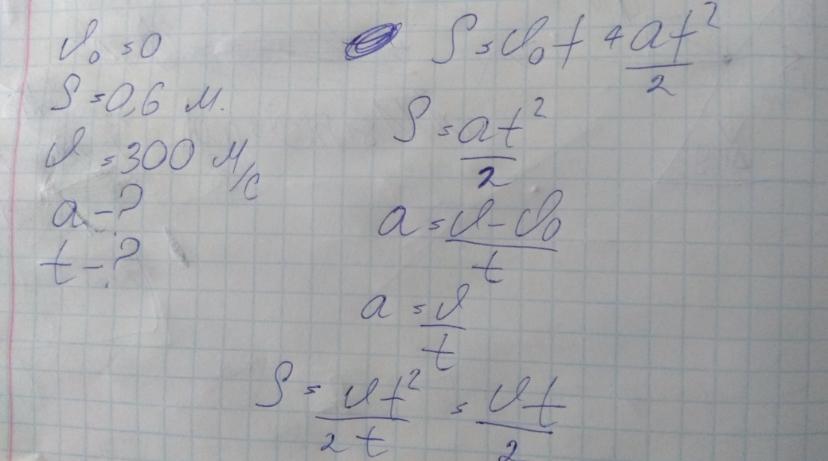 υ₀ = 0
S = 0,6 м.
υ = 300 м/с
a - ?
t - ?
S = υ₀t + at²/2
S = at²/2
a = υ - υ₀/t
a = υ/t
S = υt²/2t = υt/2